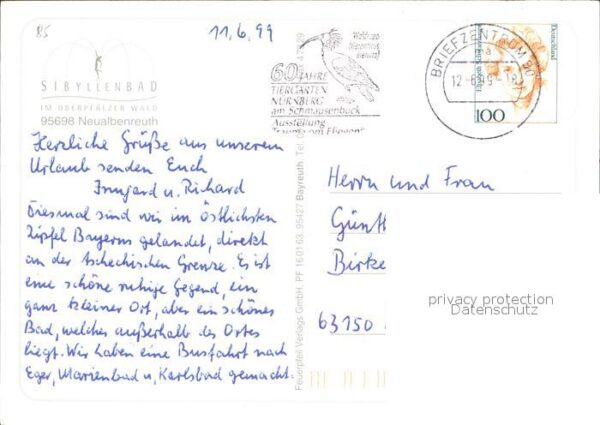 85
11.6.99
SIBYLLENBAD
IM OBERPFÄLZER WALD
95698 Neualbenreuth
Herzliche Grüße aus unserem
Urlaub senden Euch
Irmgard u. Richard
Diesmal sind wir im östlichsten
Zipfel Bayerns gelandet, direkt
an der tschechischen Grenze. Es ist
eine schöne ruhige Gegend, ein
ganz kleiner Ort, aber ein schönes
Bad, welches außerhalb des Ortes
liegt. Wir haben eine Busfahrt nach
Eger, Marienbad u. Karlsbad gemacht.
Waldrapp
60 JAHRE
TIERGARTEN
NÜRNBERG
am Schmausenbuck
Ausstellung
"Traum vom Fliegen"
BRIEFZENTRUM 90
12-6.99-18
Deutschland
100
Feuerpfeil Verlags GmbH, PF 160163, 95427 Bayreuth, Tel.
Herrn und Frau
Günth
Birke
63150
privacy protection
Datenschutz